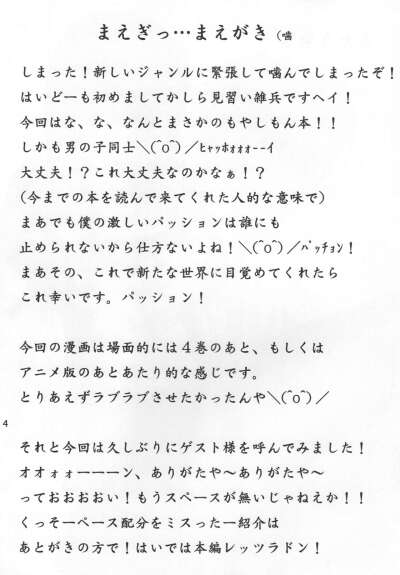 まえぎっ…まえがき（噛
しまった！新しいジャンルに緊張して噛んでしまったぞ！
はいどーも初めましてかしら見習い雑兵ですヘイ！
今回はな、な、なんとまさかのもやしもん本！！
しかも男の子同士＼(^o^)／ﾋｬｯﾎｫｫｫーーイ
大丈夫！？これ大丈夫なのかなぁ！？
(今までの本を読んで来てくれた人的な意味で)
まあでも僕の激しいパッションは誰にも
止められないから仕方ないよね！＼(^o^)／ﾊﾟｯﾁｮﾝ！
まあその、これで新たな世界に目覚めてくれたら
これ幸いです。パッション！
今回の漫画は場面的には４巻のあと、もしくは
アニメ版のあとあたり的な感じです。
とりあえずラブラブさせたかったんや＼(^o^)／
4
それと今回は久しぶりにゲスト様を呼んでみました！
オオォォーーーン、ありがたや～ありがたや～
っておおおおい！もうスペースが無いじゃねえか！！
くっそーペース配分をミスったー紹介は
あとがきの方で！はいでは本編レッツラドン！